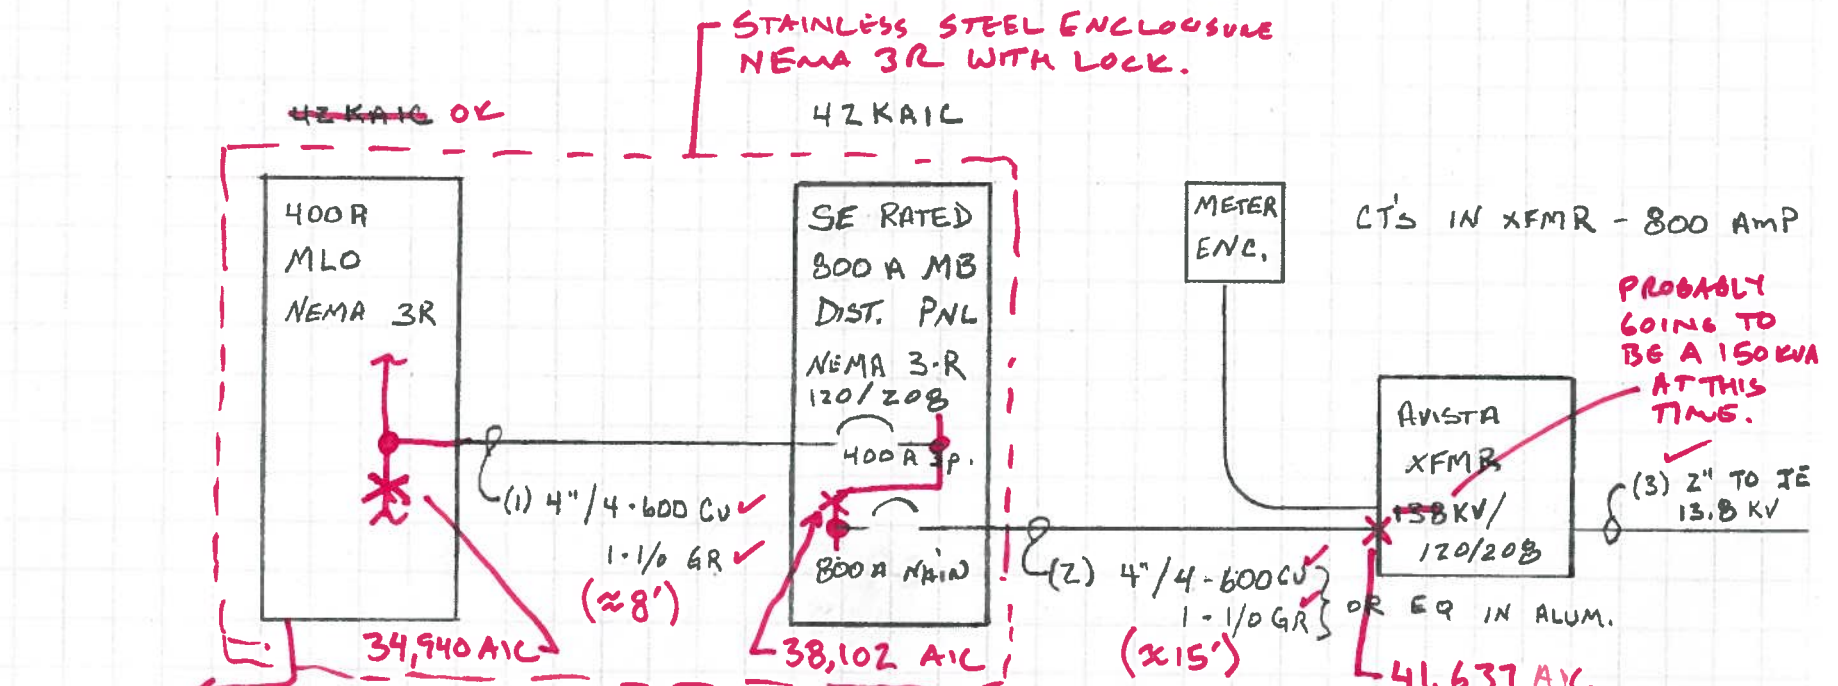 STAINLESS STEEL ENCLOUSURE
NEMA 3R WITH LOCK.
42 KAIC OK
42KAIC
400A
MLO
NEMA 3R
SE RATED
800 A MB
DIST. PNL
NEMA 3-R
120/208
400A 3P.
800A MAIN
METER
ENC.
CT'S IN XFMR - 800 AMP
PROBABLY
GOING TO
BE A 150 KVA
AT THIS
TIME.
AVISTA
XFMR
13.8KV/
120/208
(3) 2" TO JE
13.8 KV
(1) 4"/4-600 CU
1-1/0 GR
(≈8')
(2) 4"/4-600CU
1-1/0 GR
OR EQ IN ALUM.
(≈15')
34,940 AIC
38,102 AIC
41,637 AIC